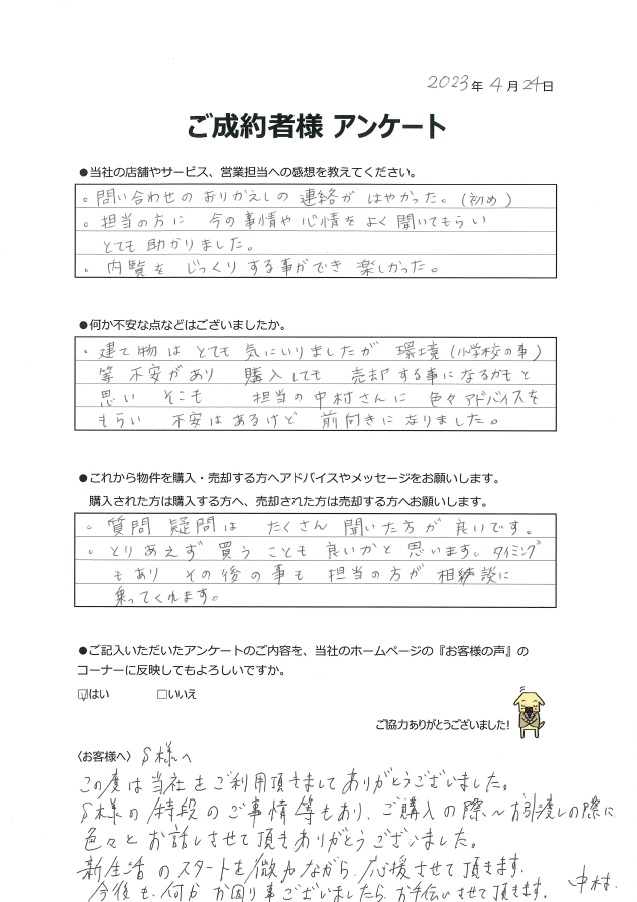 2023年4月24日
ご成約者様 アンケート
●当社の店舗やサービス、営業担当への感想を教えてください。
。問い合わせのおりかえしの連絡がはやかった。(初め)
。担当の方に 今の事情や心情をよく聞いてもらい
とても助かりました。
・内覧をじっくりする事ができ楽しかった。
●何か不安な点などはございましたか。
・建て物はとても気にいりましたが環境(小学校の事)
等不安があり 購入しても売却する事になるかもと
思い そこも 担当の中村さんに色々アドバイスを
もらい 不安はあるけど前向きになりました。
●これから物件を購入・売却する方へアドバイスやメッセージをお願いします。
購入された方は購入する方へ、売却された方は売却する方へお願いします。
。質問 疑問は たくさん 聞いた方が良いです。
・とりあえず買うことも良いかと思います。タイミング
もあり その後の事も担当の方が相談に
乗ってくれます。
●ご記入いただいたアンケートのご内容を、当社のホームページの『お客様の声』の
コーナーに反映してもよろしいですか。
☑はい □いいえ
ご協力ありがとうございました!
〈お客様へ〉 S様へ
この度は当社をご利用頂きましてありがとうございました。
S様の特段のご事情等もあり、ご購入の際〜お引渡しの際に
色々とお話しさせて頂きありがとうございました。
新生活のスタートを微力ながら応援させて頂きます。
今後も何かお困り事ございましたらお手伝いさせて頂きます。 中村